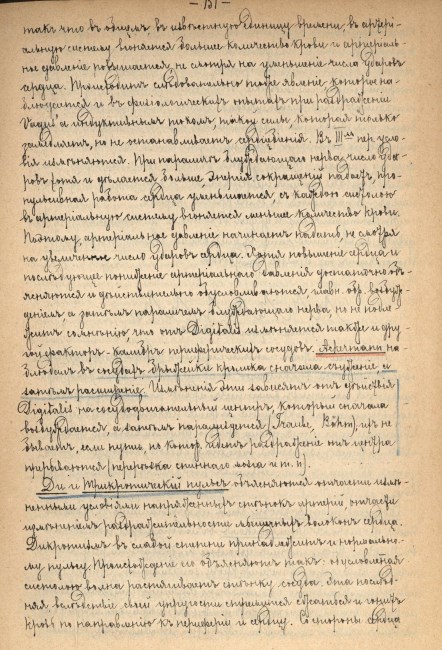 – 131 –
такъ что въ общемъ въ извѣстную единицу времени, въ артері-
альную систему вгоняется большее количество крови и артеріаль-
ное давленіе повышается, не смотря на уменьшеніе числа ударовъ
сердца. Происходитъ слѣдовательно тоже явленіе которое на-
блюдается и въ физіологическихъ опытахъ при раздраженіи
Vagus'а индуктивнымъ токомъ такой силы, которая только
замедляетъ, но не останавливаетъ сердцебіенія. Въ III-мъ пер. усло-
вія измѣняются. При параличѣ блуждающаго нерва, число уда-
ровъ хотя и дѣлается больше, энергія сокращеній падаетъ, про-
пульсивная работа сердца уменьшается, съ каждою систолою
въ артеріальную систему вгоняется меньшее количество крови.
Поэтому, артеріальное давленіе начинаетъ падать, не смотря
на увеличенное число ударовъ сердца. Хотя повышеніе сердца и
послѣдующее пониженіе артеріальнаго давленія достаточно объ-
ясняются и дѣйствительно обусловливаются, главн. обр. возбуж-
деніемъ, а затѣмъ параличемъ блуждающаго нерва, но не подле-
житъ сомнѣнію, что отъ Digitalis измѣняется также и дру-
гой факторъ – калибръ периферическихъ сосудовъ. на-
блюдалъ въ сосудахъ брыжейки кролика сначала съуженіе и
затѣмъ расширеніе. Измѣненія эти зависятъ отъ дѣйствія
Digitalis на сосудодвигательный центръ, который сначала
возбуждается, а затѣмъ парализуется (Traube, Böhm), ихъ не
бываетъ, если пути, по котор. идетъ раздраженіе отъ центра
прерываются (перерѣзка спиннаго мозга и т. п.).
Ди и Трикротическій пульсъ объясняются отчасти измѣ-
ненными условіями напряженныхъ стѣнокъ артерій, отчасти
измѣненіемъ раздражительности мышечныхъ волоконъ сердца.
Дикротизмъ въ слабой степени принадлежитъ и нормально-
му пульсу. Происхожденіе его объясняютъ такъ: обусловленная
систолою волна растягиваетъ стѣнку сосуда. Эта послѣд-
няя вслѣдствіе своей упругости стремится сжаться и гонитъ
кровь по направленію къ периферіи и сердцу. Со стороны сердца